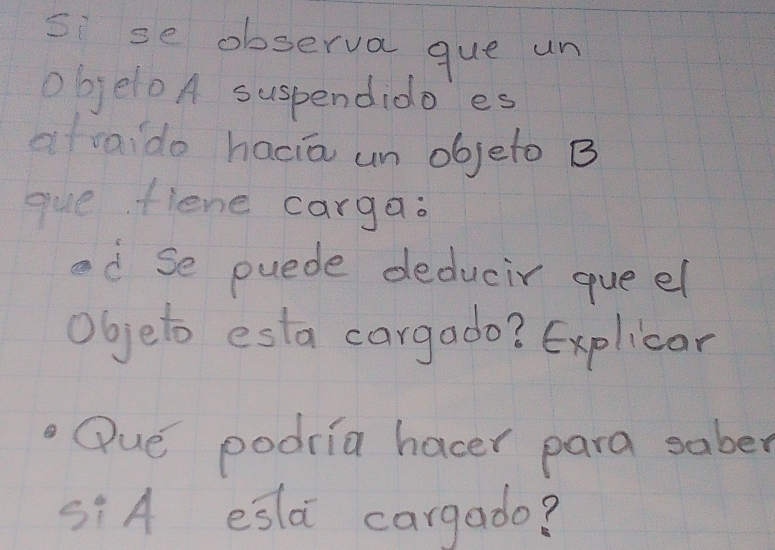 Si se observa que un
Objeto A suspendido es
atraido hacia un objeto B
que tiene carga:
• ¿ Se puede deducir que el
Objeto esta cargado? Explicar
• Qué podría hacer para saber
si A está cargado?